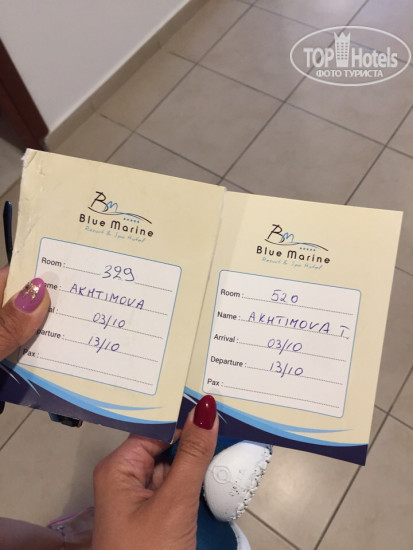 TOPHotels
ФОТО ТУРИСТА
BM
Blue Marine
Resort & Spa Hotel
Room : 329
ame : AKHTIMOVA
al : 03/10
parture : 13/10
Pax :
BM
Blue Marine
Resort & Spa Hotel
Room : 520
Name : AKHTIMOVA T.
Arrival : 03/10
Departure : 13/10
Pax :